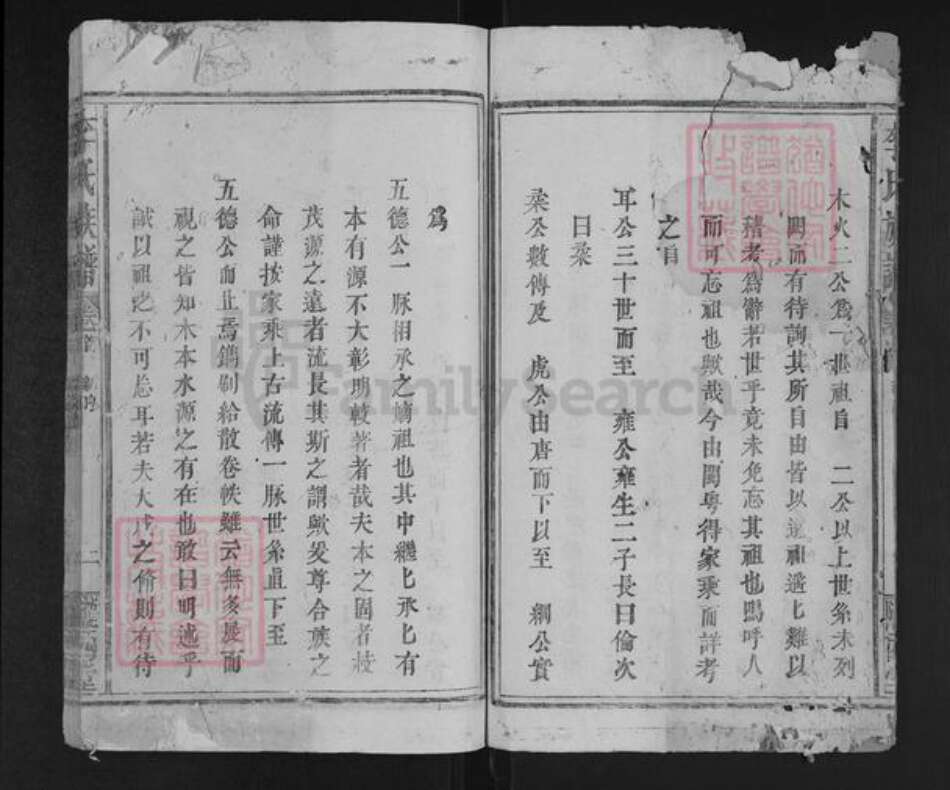 木火二公爲一世祖自　二公以上世系未列
闕而有待詢其所自由皆以遠祖遺匕難以
稽考爲辭若世乎竟未免忘其祖也嗚呼人
而可忘祖也歟哉今由閩粵得家乘而詳考
之自
耳公三十世而至　雍公雍生二子長曰倫次
曰梁
梁公數傳及　虎公由唐而下以至　綱公實
爲
五德公一脉相承之嫡祖也其中繼匕承匕有
本有源不大彰明較著者哉夫本之固者枝
茂源之遠者流長其斯之謂歟爰尊合族之
命謹按家乘上古流傳一脉世系直下至
五德公而止焉鐫刷給散卷帙雖云無多展而
視之皆知木本水源之有在也敢曰明述乎
誠以祖之不可忘耳若夫大成之脩則有待
李氏族譜
卷首
二
李氏族譜
FamilySearch